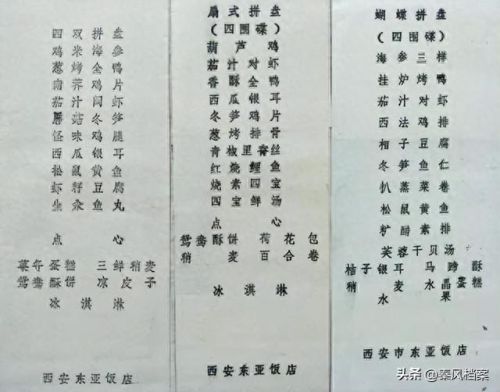 四双拼盘
鸡米海参
葱烤全鸭
南荠鸡片
茄汁闷虾
蘑菇冬笋
怪味鸡腿
西瓜银耳
松鼠黄鱼
虾籽豆腐
生汆鱼丸
点心
蛋糕 三鲜稍麦
鸳鸯酥饼 凉皮子
冰淇淋
西安东亚饭店
扇式拼盘
(四围碟)
葫芦鸡
茄汁对虾
香酥全鸭
西瓜银耳
冬笋鸡片
葱烤排骨
青椒里脊丝
红烧鲤鱼
烧素四宝
四宝汤
点心
鸳鸯酥饼 荷花包
稍麦 百合卷
冰淇淋
西安东亚饭店
蝴蝶拼盘
(四围碟)
海参三样
挂炉烤鸭
茄汁对虾
西法鸡排
相子豆腐
冬笋鱼仁
扒蒸菜卷
松鼠黄鱼
醉素排
芙蓉干贝汤
桔子银耳 马蹄酥
稍麦 水晶蛋糕
水果
西安市东亚饭店
头条 @秦风档案